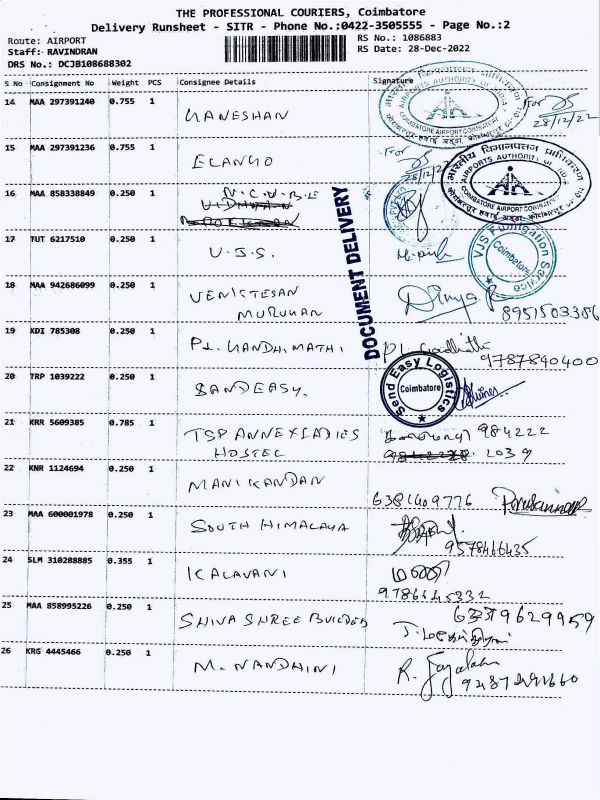 THE PROFESSIONAL COURIERS, Coimbatore
Delivery Runsheet - SITR - Phone No.:0422-3505555 - Page No.:2
Route: AIRPORT RS No.: 1086883
Staff: RAVINDRAN RS Date: 28-Dec-2022
DRS No.: DCJB108688302
S No Consignment No Weight PCS Consignee Details Signature
14 MAA 297391240 0.755 1 GANESHAN For 28/12/22
AIRPORTS AUTHORITY OF INDIA
COIMBATORE AIRPORT
15 MAA 297391236 0.755 1 ELANGO For 28/12/22
भारतीय विमानपत्तन प्राधिकरण
AIRPORTS AUTHORITY OF INDIA
COIMBATORE AIRPORT
16 MAA 858338849 0.250 1 N.C.V.B.E
DOCUMENT DELIVERY
17 TUT 6217510 0.250 1 V.J.S.
VJS Fumigation Service
Coimbatore
18 MAA 942686099 0.250 1 VENKTESAN
MURUGAN Divya 8951503386
19 KDI 785308 0.250 1 P.L. GANDHIMATHI P.L. Gandhithi
9787840400
20 TRP 1039222 0.250 1 SANDEASY.
Send Easy Logistics
Coimbatore
21 KRR 5609385 0.785 1 TSP ANNEX LADIES 984222
HOSTEL 2039
22 KNR 1124694 0.250 1 MANIKANDAN
6381409776
23 MAA 600001978 0.250 1 SOUTH HIMALAYA
9578466435
24 SLM 310288885 0.355 1 KALAVANI
9786645332
25 MAA 858995226 0.250 1 SHIVA SHREE BUILDERS
26 KRG 4445466 0.250 1 M. NANDHINI R. Jayalakshmi